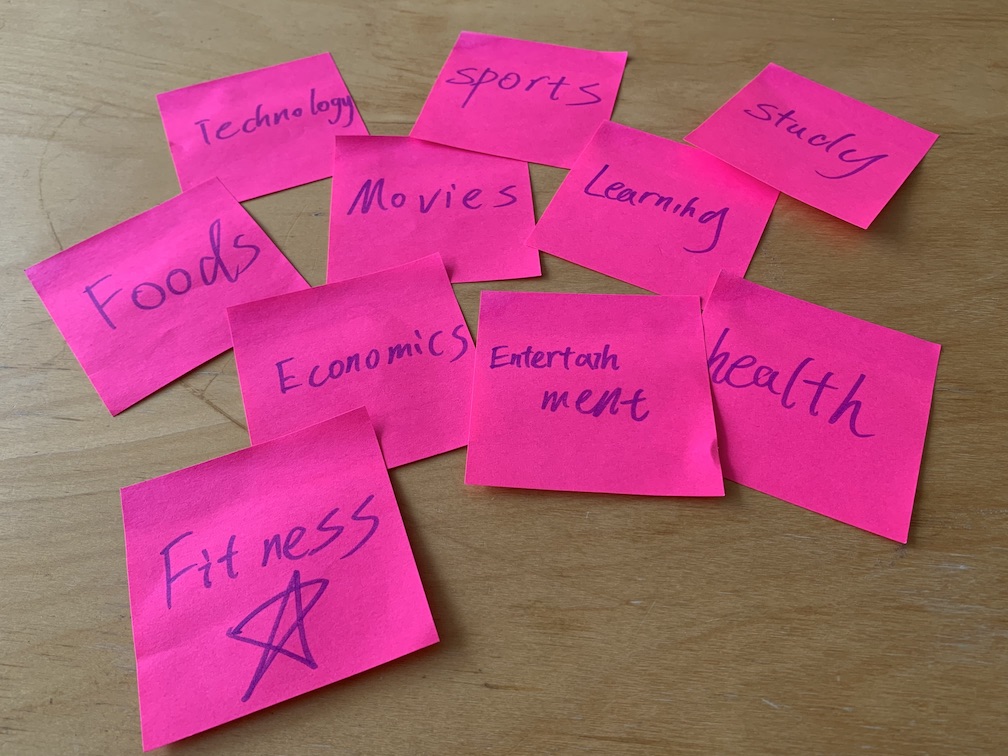 Technology
sports
study
Movies
Learning
Foods
Economics
Entertain
ment
health
Fitness